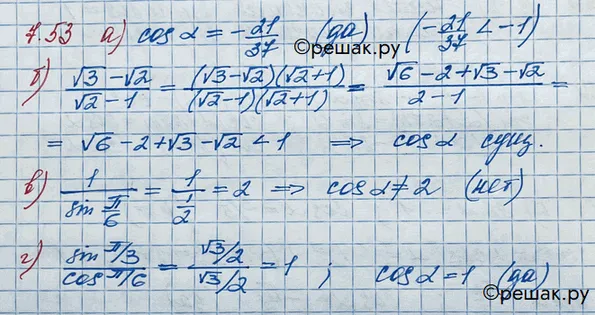 7.53 а) cos α = -21/37 (да) (-21/37 < -1)
©решак.ру
б) (√3 - √2)/(√2 - 1) = ((√3 - √2)(√2 + 1))/((√2 - 1)(√2 + 1)) = (√6 - 2 + √3 - √2)/(2 - 1) =
= √6 - 2 + √3 - √2 < 1 ⇒ cos α сущ.
в) 1/(sin π/6) = 1/(1/2) = 2 ⇒ cos α ≠ 2 (нет)
г) (sin π/3)/(cos π/6) = (√3/2)/(√3/2) = 1 ; cos α = 1 (да)
©решак.ру